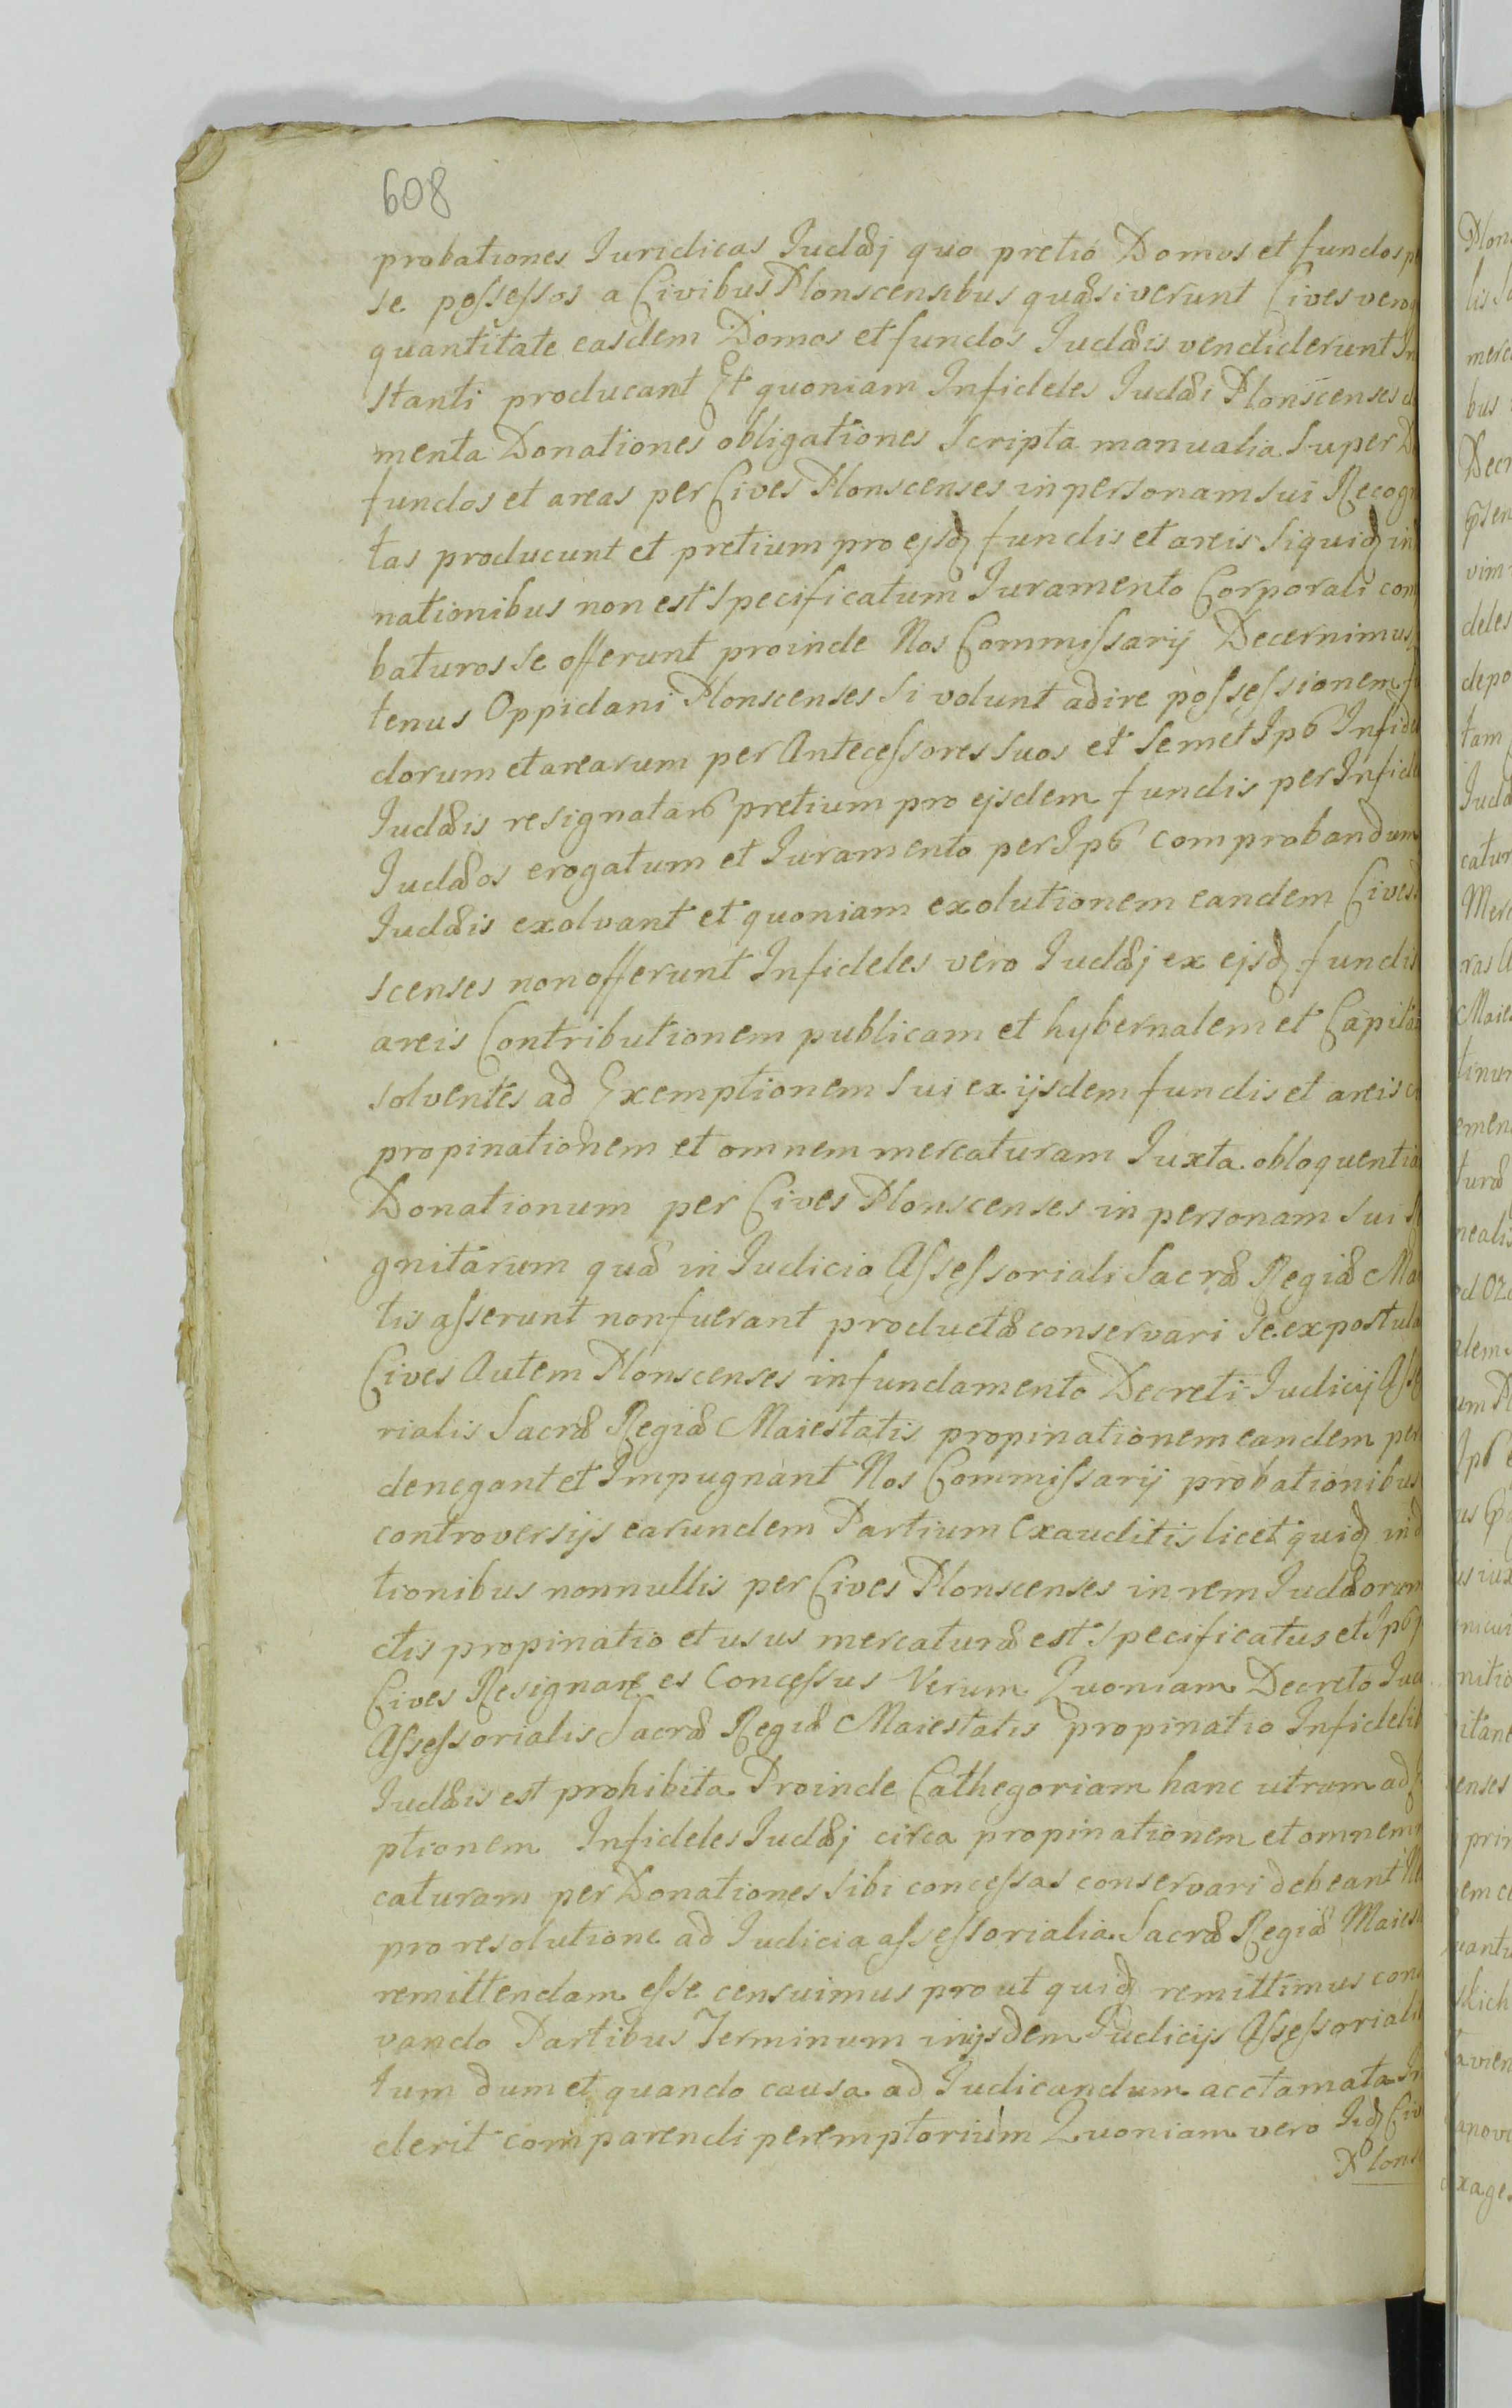 608
probationes Iuridicas Iudæj quo pretio Domos et fundos p
se possessos a Civibus Plonscensibus quæsiverunt Cives vero
quantitate easdem Domos et fundos Iudæis vendiderunt In
stanti producant Et quoniam Infideles Iudæi Plonscenses d
menta Donationes obligationes Scripta manualia Super D
fundos et areas per Cives Plonscenses in personam sui Recogn
tas producunt et pretium pro ejsdẽ fundis et areis Siquidẽ in
nationibus non est Specificatum Iuramento Corporali com
baturos se offerunt proinde Nos Commissarij Decernimus
tenus Oppidani Plonscenses Si volunt adire possessionem f
dorum et arearum per Antecessores suos et Semet Ipõs Infide
Iudæis resignatarõ pretium pro ejsdem fundis per Infide
Iudæos erogatum et Iuramento per Ipõs comprobandum
Iudæis exolvant et quoniam exolutionem eandem Cives
scenses non offerunt Infideles vero Iudæj ex ejsdẽ fundis
areis Contributionem publicam et hybernalem et Capita
solventes ad Exemptionem sui ex ijsdem fundis et areis c
propinationem et omnem mercaturam Iuxta obloquentia
Donationum per Cives Plonscenses in personam sui
gnitarum quæ in Iudicio Assessoriali Sacræ Regiæ Ma
tis asserunt non fuerant productæ conservari se expostula
Cives Autem Plonscenses in fundamento Decreti Iudicij Asse
rialis Sacræ Regiæ Maiestatis propinationem eandem per
denegant et Impugnant Nos Commissarij probationibus
controversijs earundem Partium Exauditis licet quidẽ in d
tionibus nonnullis per Cives Plonscenses in rem Iudæorum
ctis propinatio et usus mercaturæ est Specificatus et Ipõs
Cives Resignantes Concessus Verum Quoniam Decreto Iud
Assessorialis Sacræ Regiæ Maiestatis propinatio Infidelib
Iudæis est prohibita Proinde Cathegoriam hanc utrum ad
ptionem Infideles Iudæj circa propinationem et omnem
caturam per Donationes Sibi concessas conservari debeant
pro resolutione ad Iudicia assessorialia Sacræ Regiæ Maies
remittendam esse censuimus prout quidẽ remittimus con
vando Partibus Terminum in ijsdem Iudicijs Assessoriali
tum dum et quando causa ad Iudicandum acclamata In
derit comparendi peremptorium Quoniam vero Iidẽ Civ
Plons